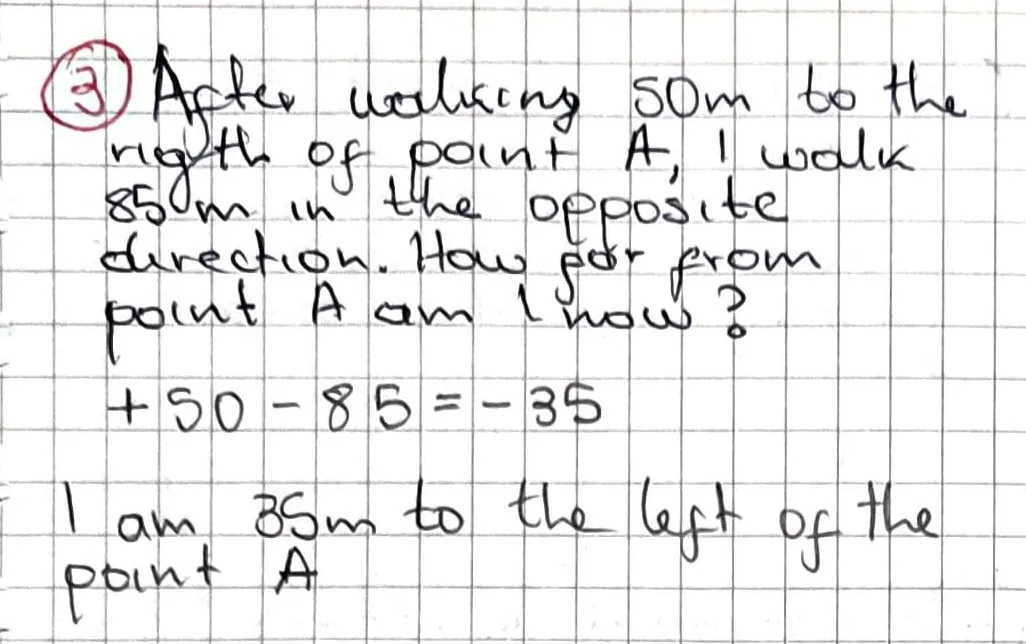 ③ After walking 50m to the
rigth of point A, I walk
85m in the opposite
direction. How far from
point A am I now?
+50-85=-35
I am 35m to the left of the
point A